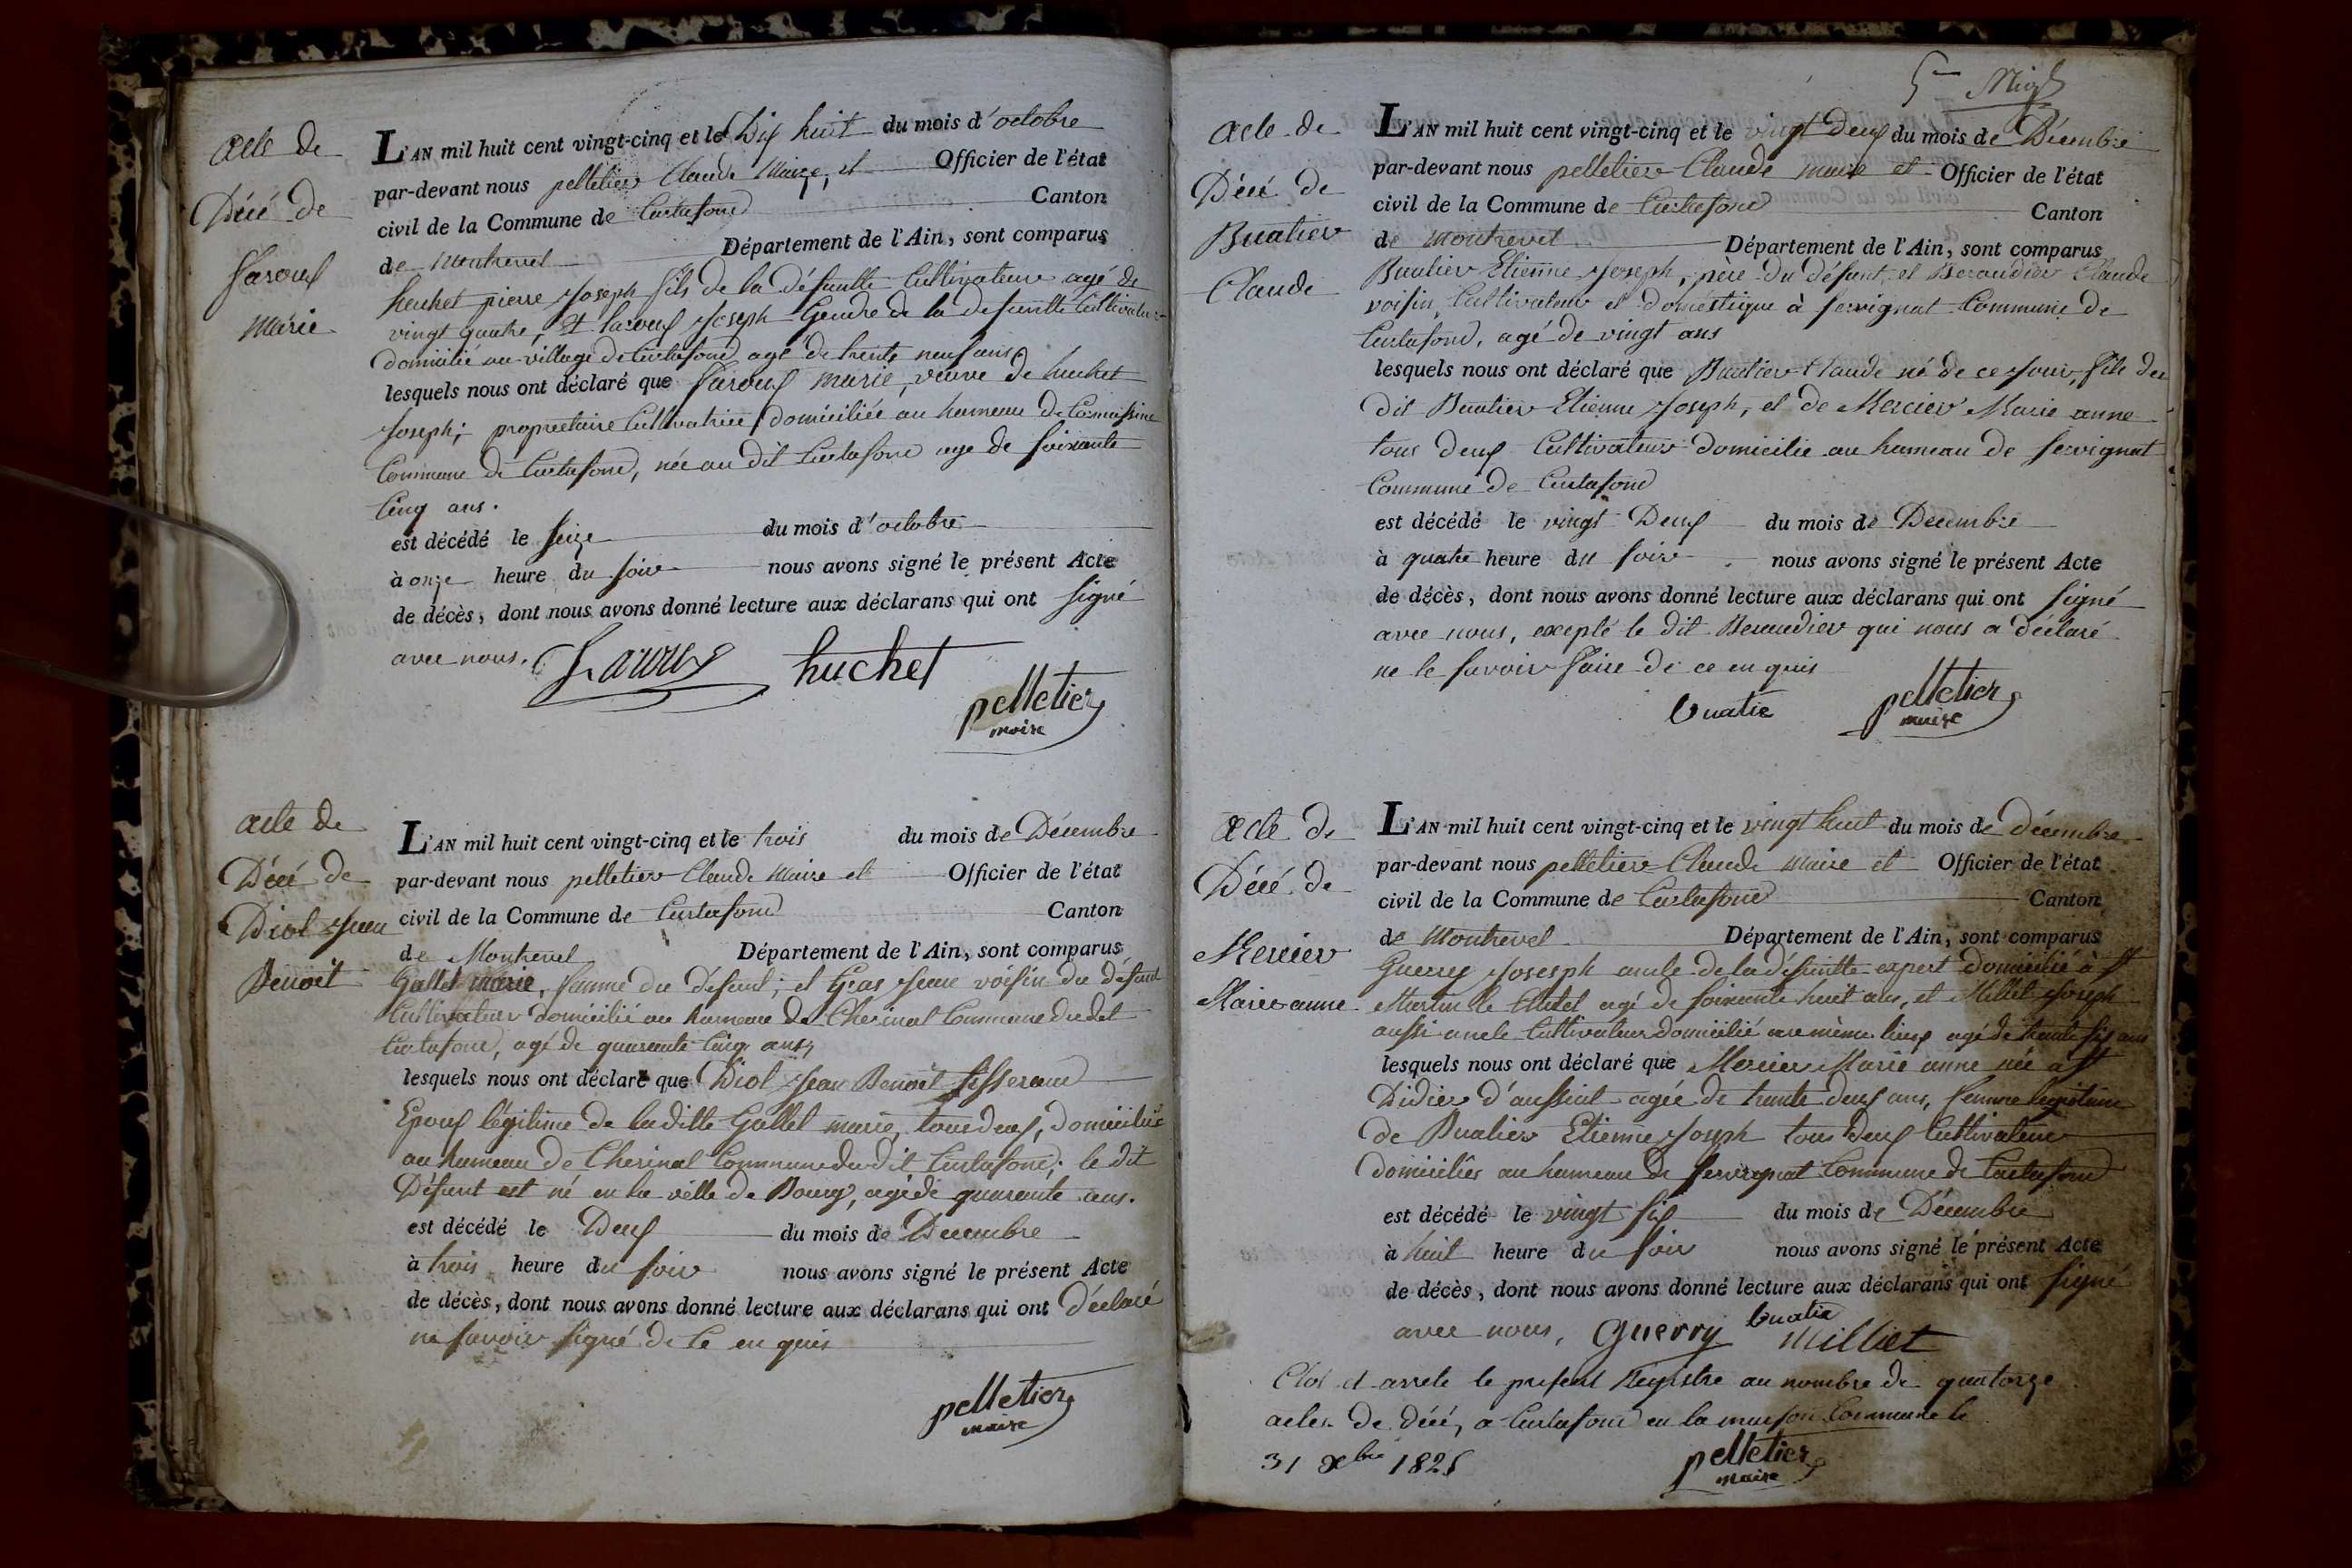 acte de
Décé de
Laroux
Marie
L'AN mil huit cent vingt-cinq et le Dix huit du mois d'octobre
par-devant nous pelletier Claude Maire, et Officier de l'état
civil de la Commune de Curtafond Canton
de Montrevel Département de l'Ain, sont comparus
huchet pierre Joseph fils de la défuntte Cultivateur agé de
vingt quatre, Et Laroux Joseph Gendre de la defuntte Cultivateur
domicilié au village de Curtafond agé de trente neuf ans
lesquels nous ont déclaré que Laroux marie, veuve de huchet
Joseph; propriétaire Cultivatrice domiciliée au hameau de
Commune de Curtafond, née au dit Curtafond age de soixante
Cinq ans.
est décédé le seize du mois d'octobre
à onze heure du soir nous avons signé le présent Acte
de décès, dont nous avons donné lecture aux déclarans qui ont signé
avec nous. Laroux huchet
pelletier
maire
acte de
Décé de
Diol Jean
Benoit
L'AN mil huit cent vingt-cinq et le trois du mois de Décembre
par-devant nous pelletier Claude Maire et Officier de l'état
civil de la Commune de Curtafond Canton
de Montrevel Département de l'Ain, sont comparus
Gallet marie, famme du Défunt; et Gras Jean voisin du défunt
Cultivateur domicilié au hameau de Cherinal Commune dudit
Curtafond, agé de quarante Cinq ans,
lesquels nous ont déclaré que Diol Jean Benoit tisserand
Epoux légitime de laditte Gallet marie, tous deux, domiciliés
au hameau de Cherinal Commune dudit Curtafond; le dit
Défunt est né en la ville de Bourg, agé de quarante ans.
est décédé le Deux du mois de Décembre
à trois heure du soir nous avons signé le présent Acte
de décès, dont nous avons donné lecture aux déclarans qui ont déclaré
ne savoir signé de ce en quis
pelletier
maire
acte de
Décé de
Buatier
Claude
L'AN mil huit cent vingt-cinq et le vingt Deux du mois de Décembre
par-devant nous pelletier Claude maire et Officier de l'état
civil de la Commune de Curtafond Canton
de Montrevel Département de l'Ain, sont comparus
Buatier Etienne Joseph, père du défunt, et Beraudier Claude
voisin, Cultivateur et doméstique à servignat Commune de
Curtafond, agé de vingt ans
lesquels nous ont déclaré que Buatier Claude né de ce jour, fils du
dit Buatier Etienne Joseph, et de Mercier Marie anne
tous deux Cultivateur domicilie au hameau de servignat
Commune de Curtafond
est décédé le vingt Deux du mois de Décembre
à quatre heure du soir nous avons signé le présent Acte
de décès, dont nous avons donné lecture aux déclarans qui ont signé
avec nous, excepté le dit Beraudier qui nous a déclaré
ne le savoir faire de ce en quis
buatie pelletier
maire
acte de
Décé de
Mercier
Marie anne
L'AN mil huit cent vingt-cinq et le vingt huit du mois de décembre
par-devant nous pelletier Claude Maire et Officier de l'état
civil de la Commune de Curtafond Canton
de Montrevel Département de l'Ain, sont comparus
Guerry Joseph oncle de la défuntte expert domicilié à St
Martin le Chatel agé de soixante huit ans, et Milliet Joseph
aussi oncle Cultivateur domicilié au même lieux agé de trente six ans
lesquels nous ont déclaré que Mercier Marie anne née a St
Didier d'aussiat agée de trente deux ans, femme legitime
de Buatier Etienne Joseph tous deux Cultivateur
domiciliés au hameau de servignat Commune de Curtafond
est décédé le vingt six du mois de Décembre
à huit heure du soir nous avons signé le présent Acte
de décès, dont nous avons donné lecture aux déclarans qui ont signé
avec nous, Guerry buatie Milliet
Clos et arreté le present Régistre au nombre de quatorze
actes de décé, a Curtafond en la maison Commune le
31 Xbre 1825 pelletier
maire